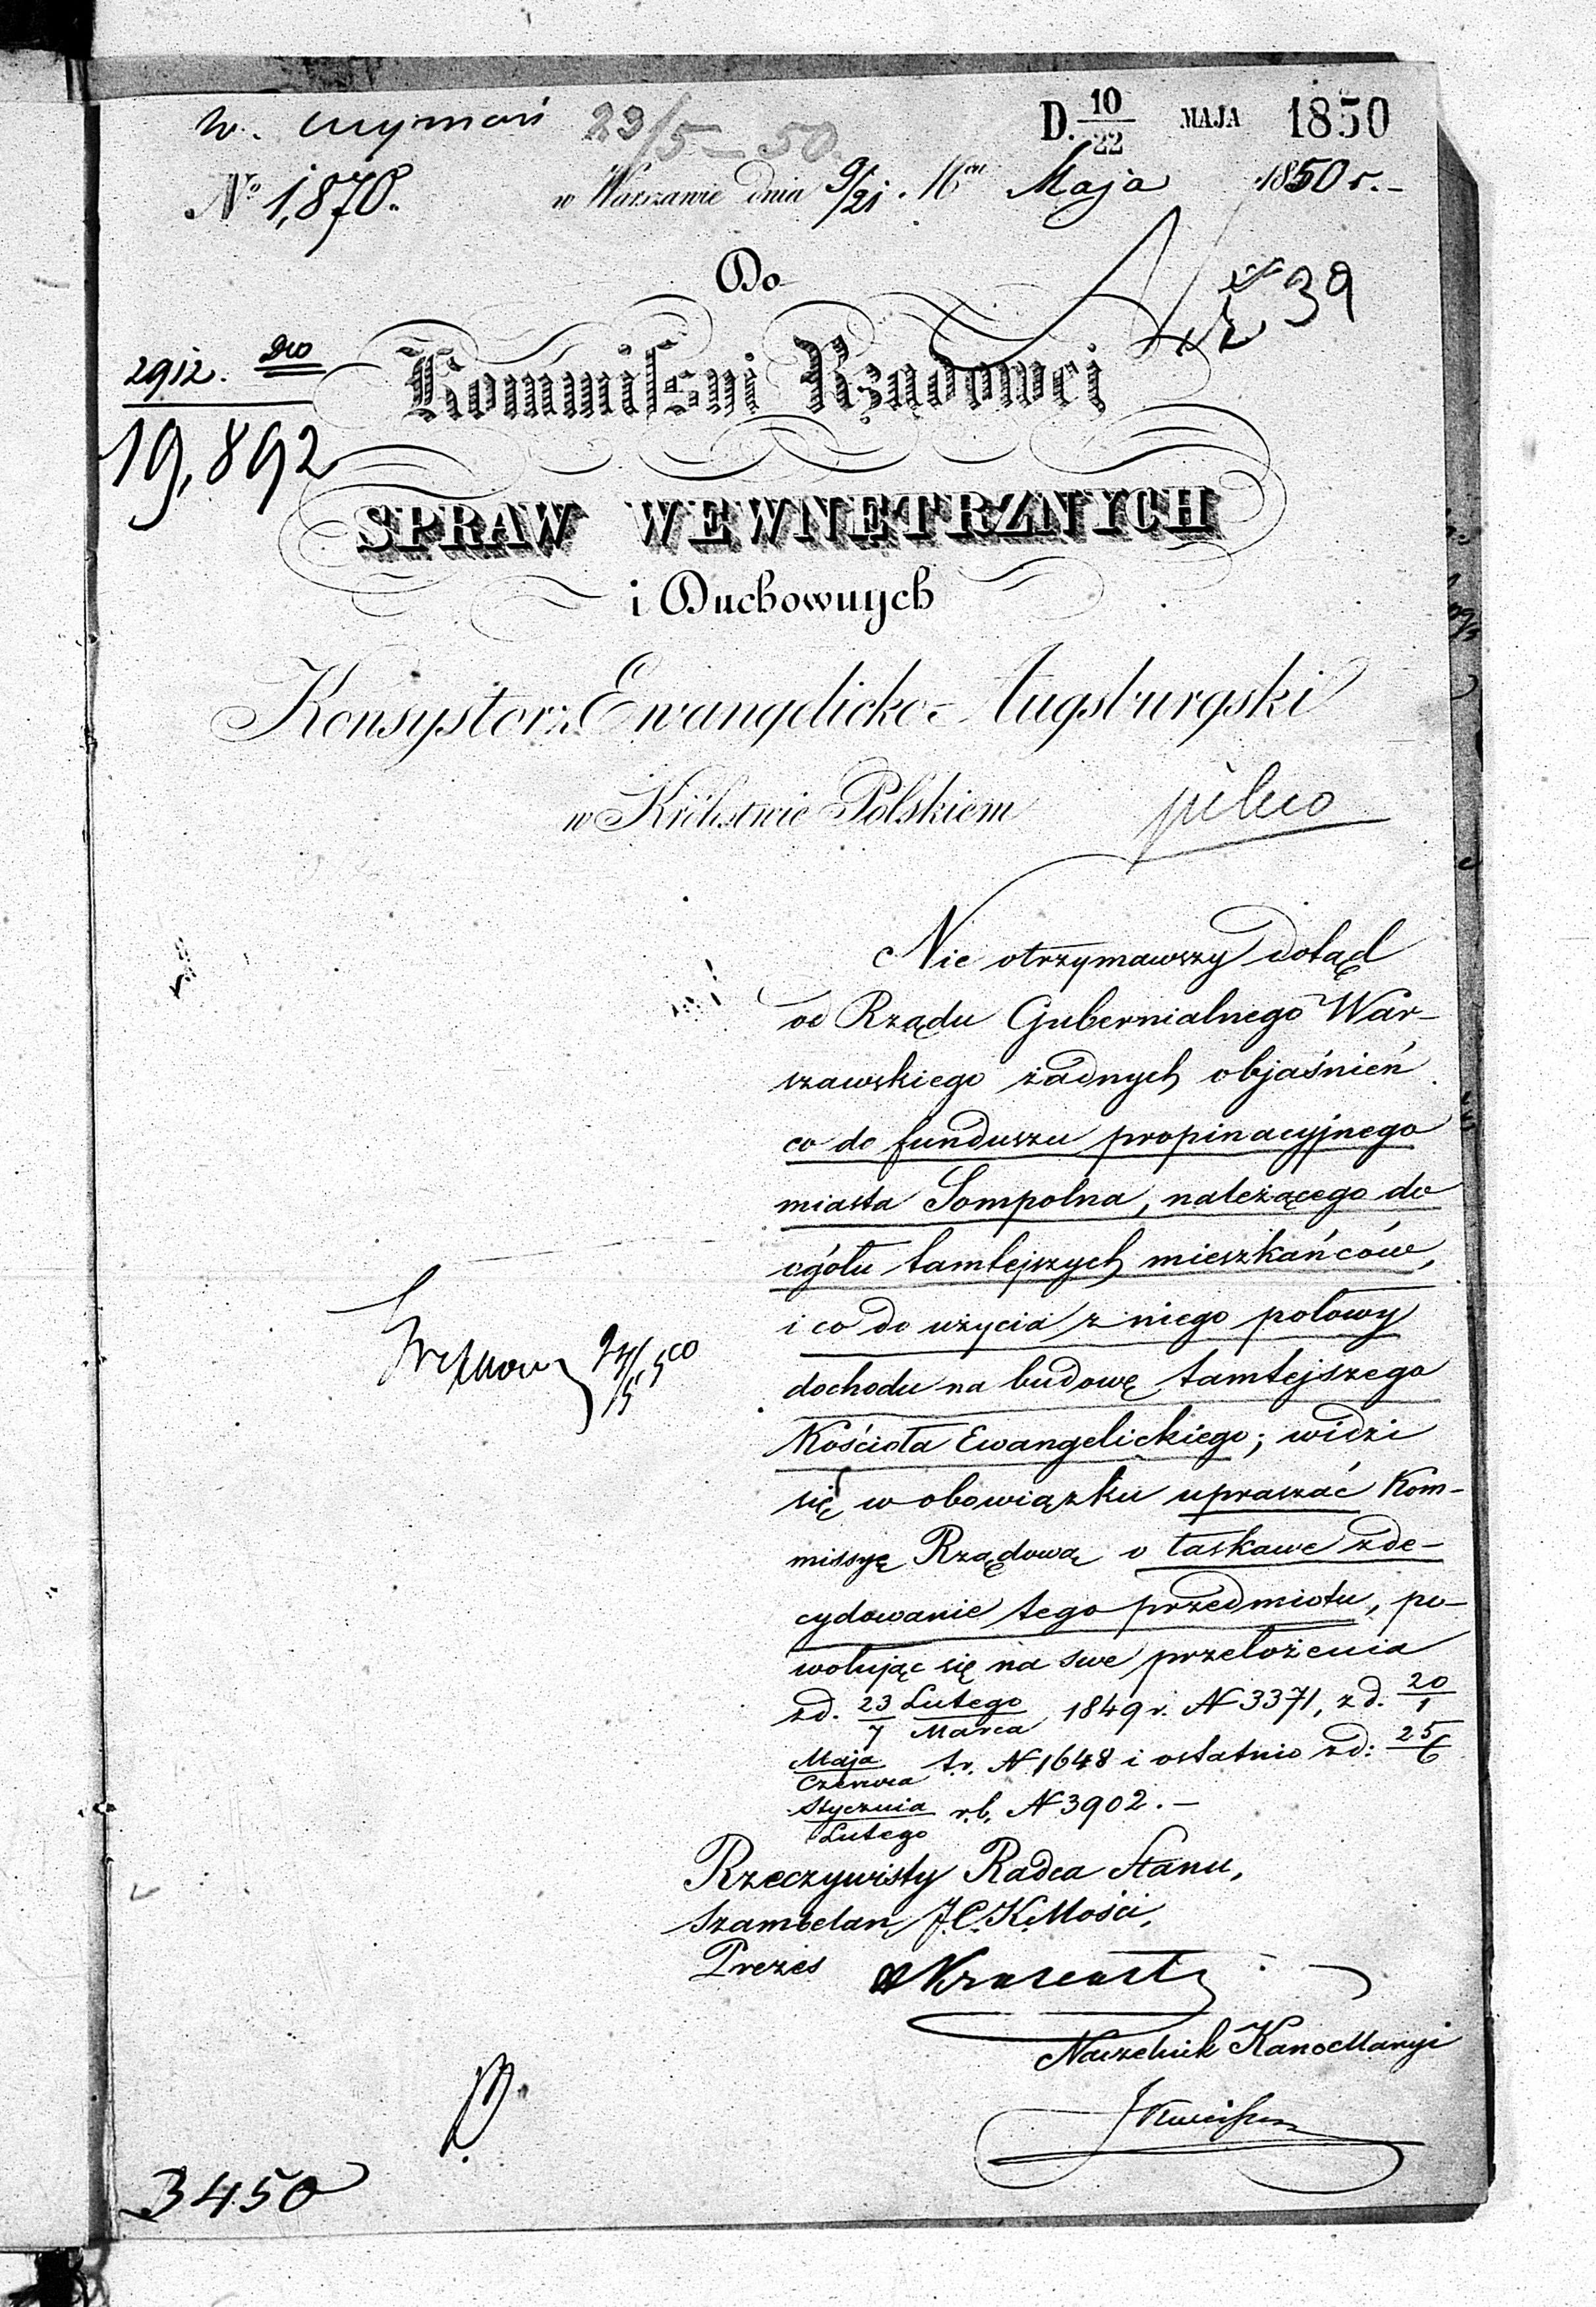 23/5 – 50
D. 10/22 MAJA 1850
№ 1,870.
w Warszawie dnia 9/21 Maja 1850 r. –
39
Do
2912.
19,892
Kommissyi Rządowej
SPRAW WEWNĘTRZNYCH
i Duchownych
Konsystorz Ewangelicko-Augsburgski
w Królestwie Polskiem
pilno
Nie otrzymawszy dotąd
od Rządu Gubernialnego War-
szawskiego żadnych objaśnień
co do funduszu propinacyjnego
miasta Sompolna, należącego do
ogółu tamtejszych mieszkańców,
i co do użycia z niego połowy
dochodu na budowę tamtejszego
Kościoła Ewangelickiego; widzi
się w obowiązku upraszać Kom-
missyę Rządową o łaskawe zde-
cydowanie tego przedmiotu, po-
wołując się na swe przełożenia
z d. 23 Lutego/7 Marca 1849 r. N 3371, z d. 20/1
Maja/Czerwca t.r. N 1648 i ostatnio z d: 25/6
Stycznia/Lutego r.b. N 3902. –
Rzeczywisty Radca Stanu,
Szambelan J.C.K. Mości,
Prezes
Naczelnik Kancellaryi
3450